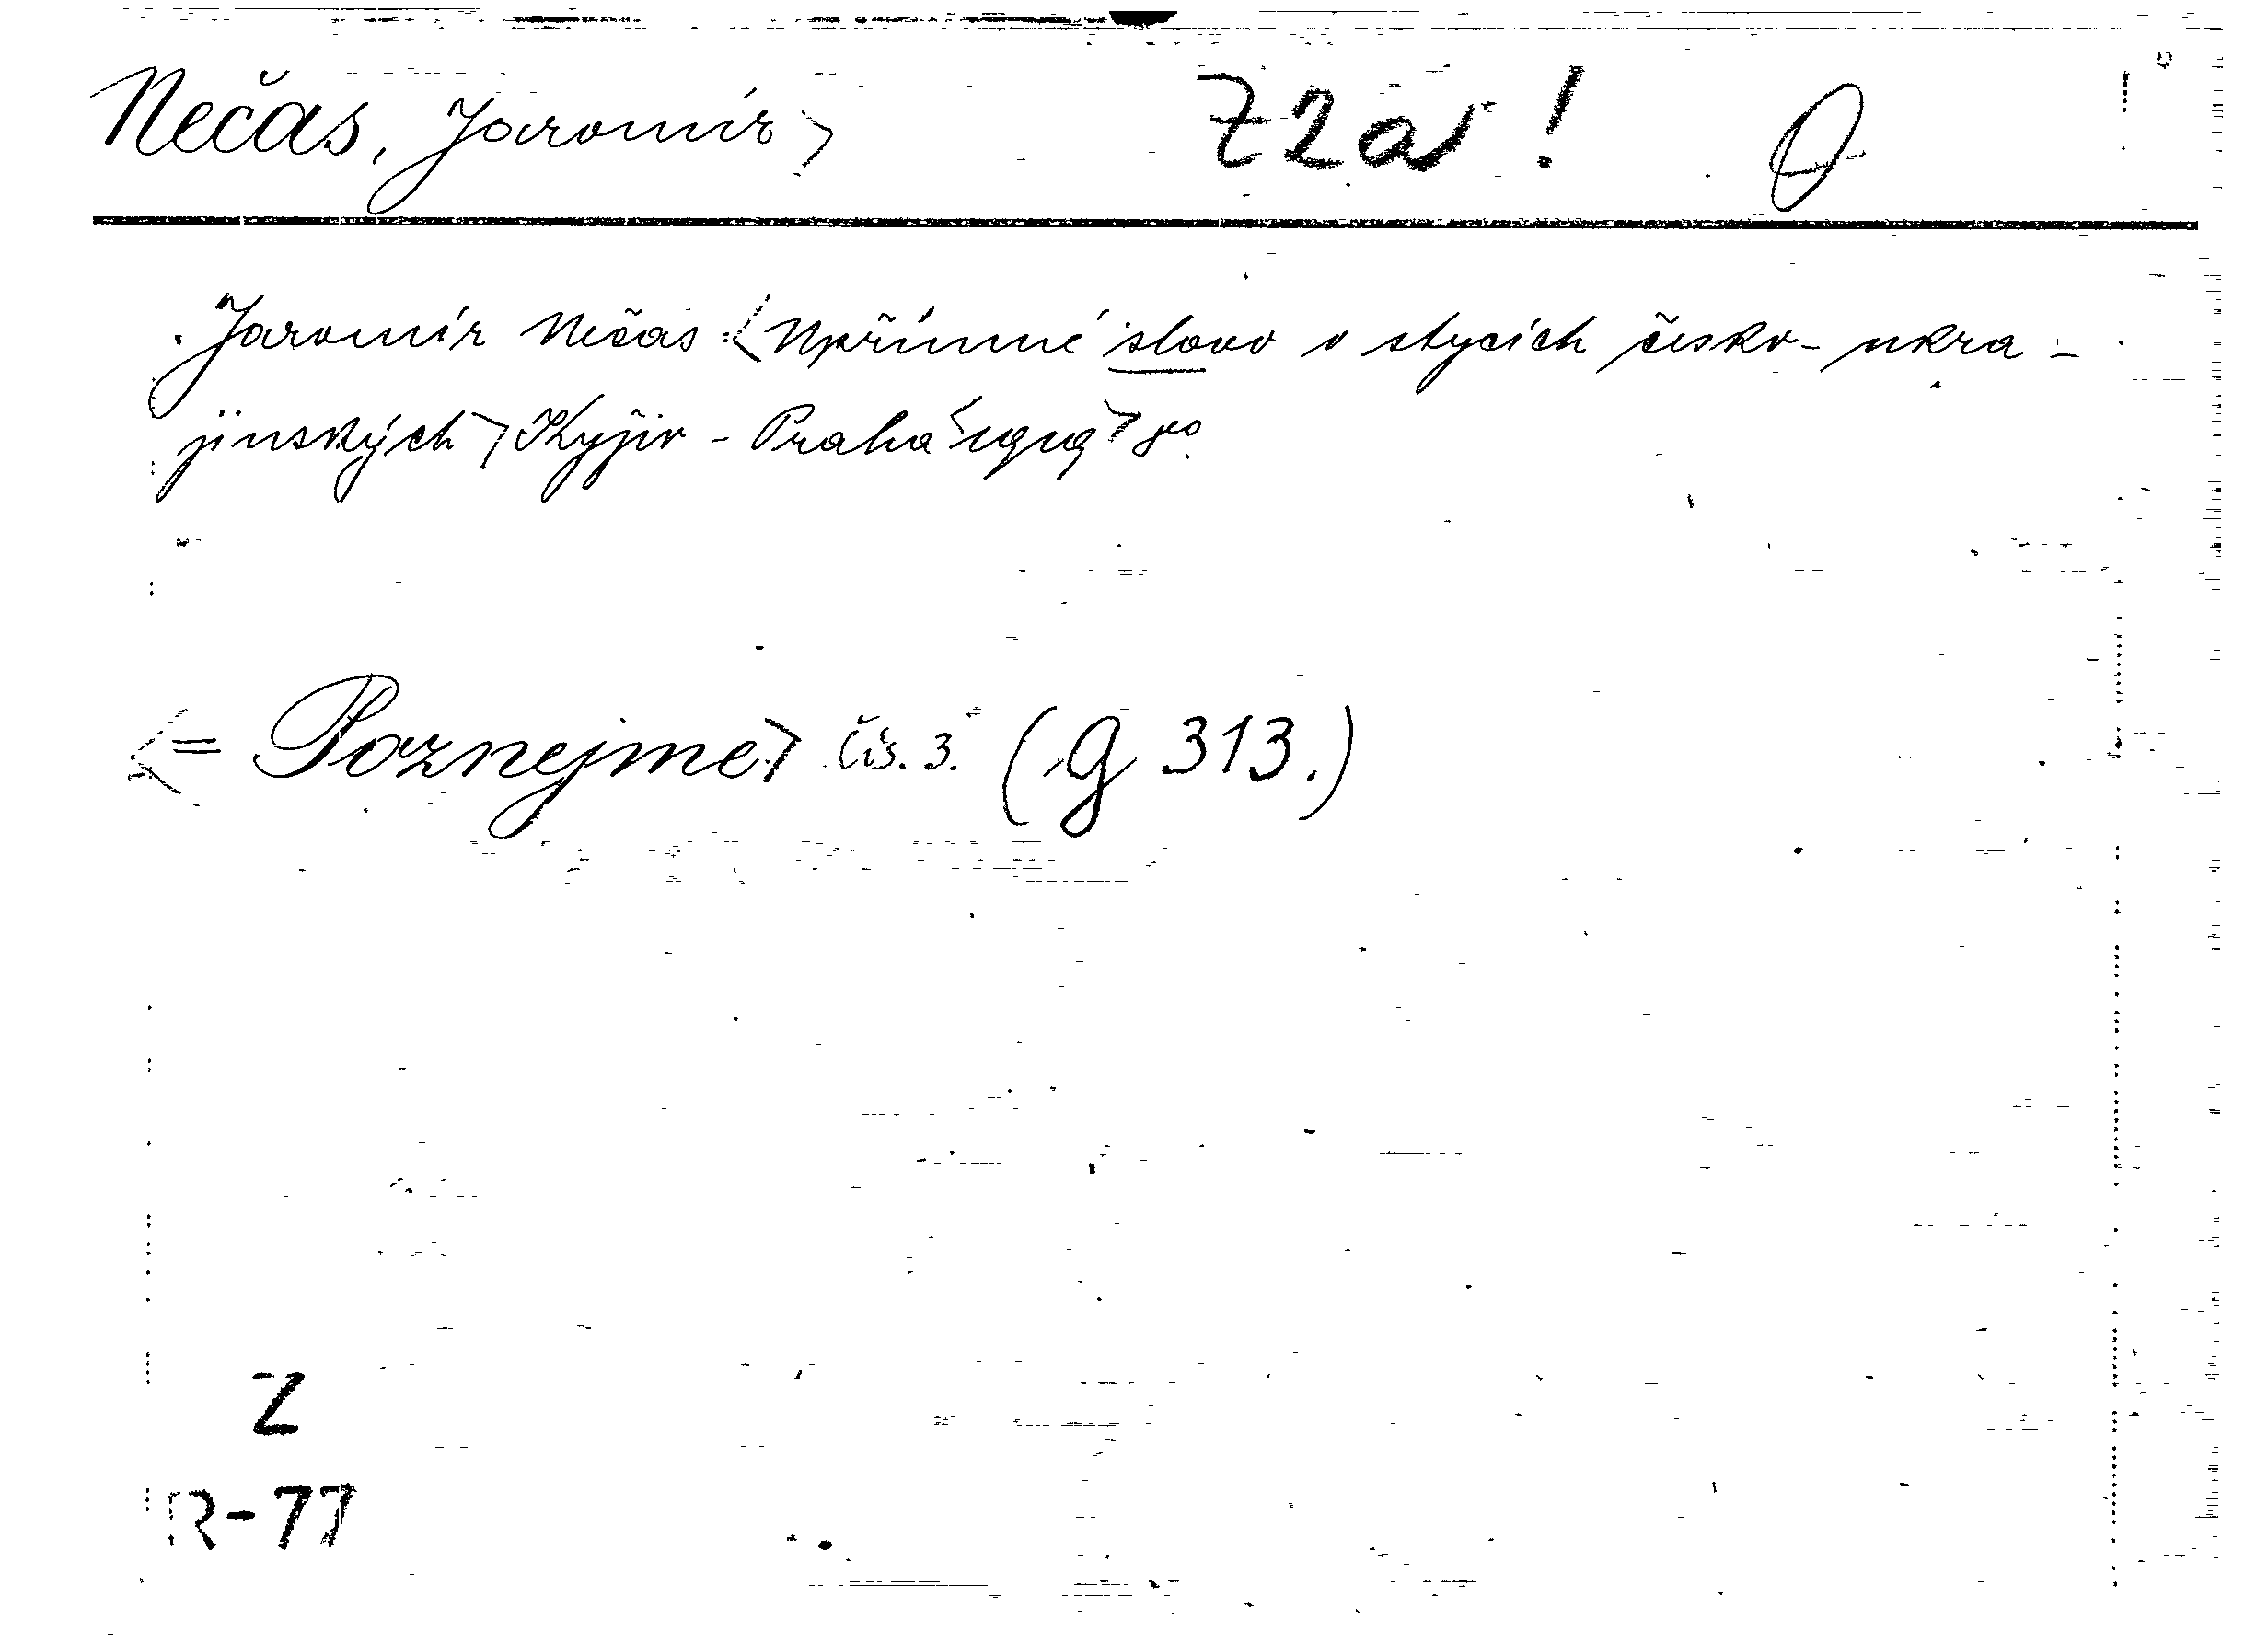 Nečas, Jaromír> O
Jaromír Nečas: <Upřímné slovo o stycích česko-ukra-
jinských> Kyjiv - Praha <1919> 8º.
<= Poznejme> čís. 3. (g 313.)
Z
R-77